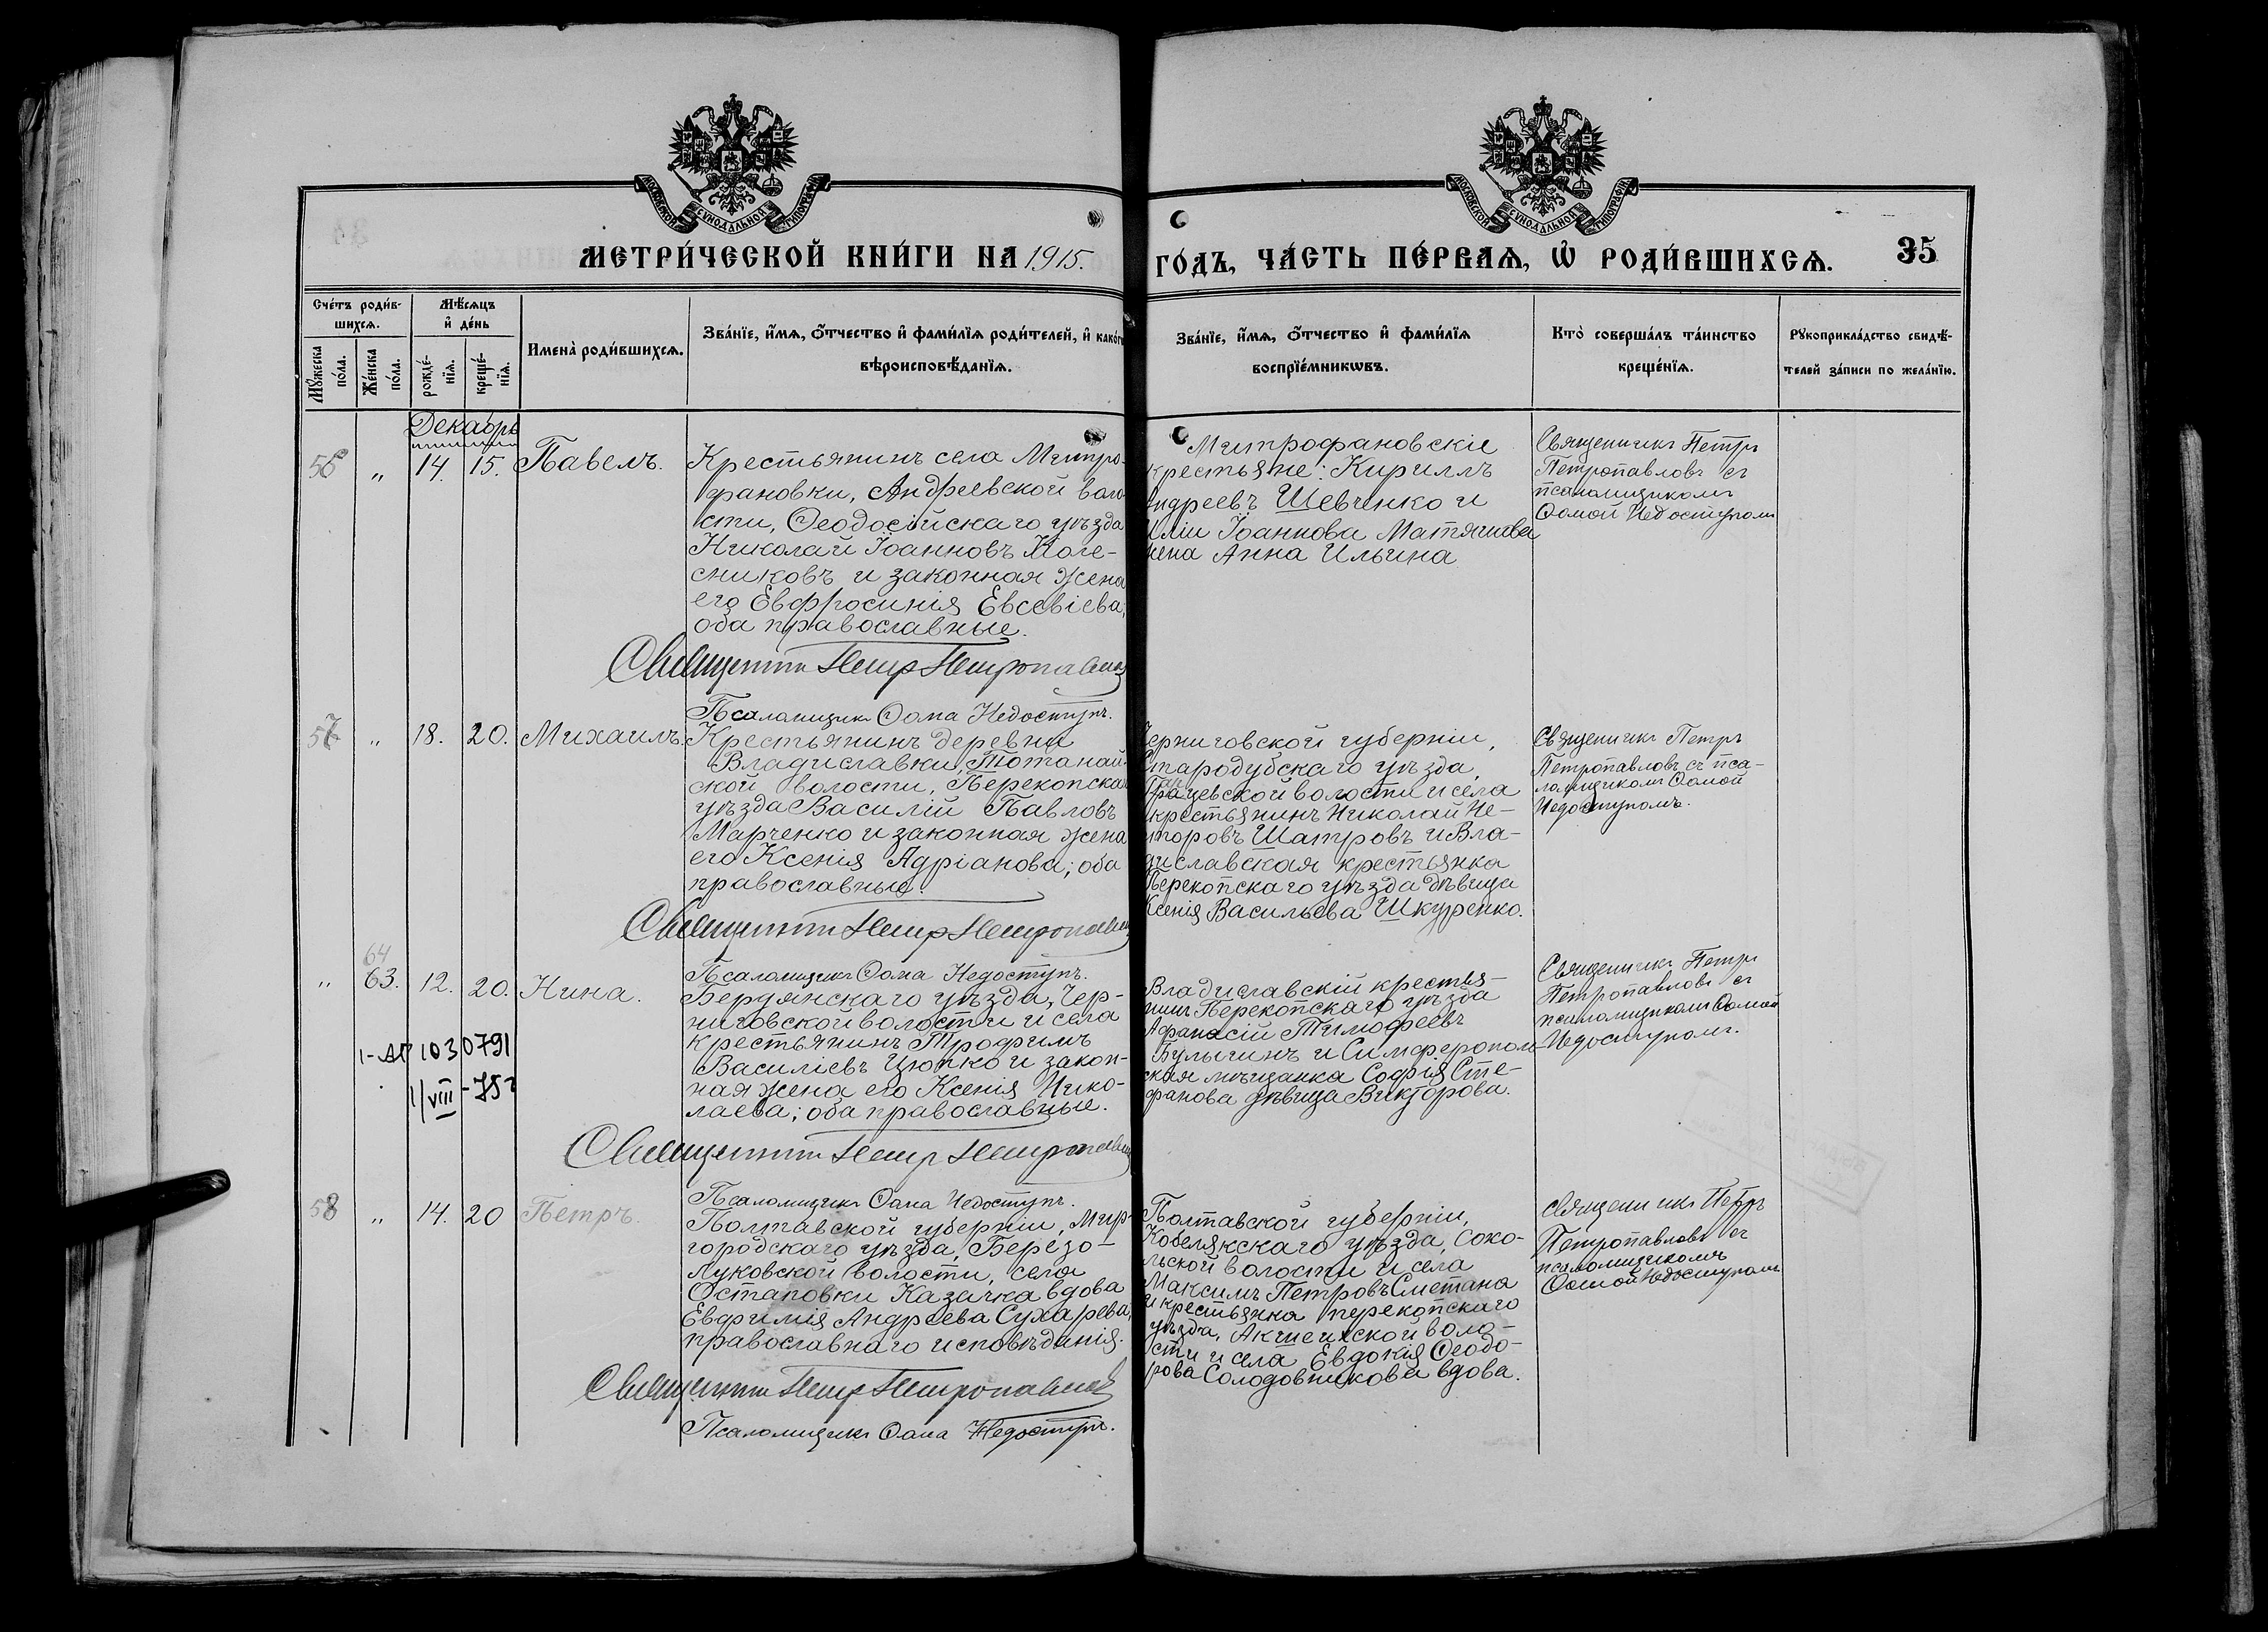 МОСКОВСКОЙ СѴНОДАЛЬНОЙ ТИПОГРАФІИ
МОСКОВСКОЙ СѴНОДАЛЬНОЙ ТИПОГРАФІИ
МЕТРИ́ЧЕСКОЙ КНИ́ГИ НА 1915.
ГО́ДЪ, ЧА́СТЬ ПЕ́РВАѦ, Ѡ҆ РОДИ́ВШИХСѦ.
35
Сче́тъ роди́в-
шихсѧ.
Мѣ́сѧцъ
и҆ де́нь
Мꙋ́жеска
по́ла.
Же́нска
по́ла.
рожде́-
нїѧ.
креще́-
нїѧ.
Имена̀ роди́вшихсѧ.
Зва́нїе, и҆́мѧ, ѻ҆́тчество и҆ фами́лїѧ роди́телей, и҆ како́гѡ
вѣроисповѣ́данїѧ.
Зва́нїе, и҆́мѧ, ѻ҆́тчество и҆ фами́лїѧ
воспрїе́мникѡвъ.
Кто̀ соверша́лъ та́инство
креще́нїѧ.
Рꙋкоприкла́дство свидѣ́-
телей за́писи по жела́нїю.
Декабрь
56 „ 14. 15. Павелъ.
Крестьянинъ села Митро-
фановки, Андреевской воло-
сти, Ѳеодосійскаго уѣзда
Николай Іоанновъ Коле-
сниковъ и законная жена
его Евфросинія Евсевіева,
оба православные.
Священникъ Петръ Петропавловъ
Псаломщикъ Ѳома Недоступъ.
Митрофановскіе
крестьяне: Кириллъ
Андреевъ Шевченко и
Иліи Іоаннова Матяшова
жена Анна Ильина
Священникъ Петръ
Петропавловъ съ
псаломщикомъ
Ѳомой Недоступомъ
57 „ 18. 20. Михаилъ.
Крестьянинъ деревни
Владиславки, Тотанай-
ской волости, Перекопскаго
уѣзда Василій Павловъ
Марченко и законная жена
его Ксенія Адріанова; оба
православные.
Священникъ Петръ Петропавловъ
Псаломщикъ Ѳома Недоступъ.
Черниговской губерніи,
Стародубскаго уѣзда,
волости и села
крестьянинъ Николай Не-
сторовъ Шатровъ и Вла-
диславская крестьянка
Перекопскаго уѣзда дѣвица
Ксенія Васильева Шкуренко.
Священникъ Петръ
Петропавловъ съ пса-
ломщикомъ Ѳомой
Недоступомъ.
64
„ 63. 12. 20. Нина.
Бердянскаго уѣзда, Чер-
ниговской волости и села
крестьянинъ Трофимъ
Василіевъ Цюпко и закон-
ная жена его Ксенія Нико-
лаева; оба православные.
Священникъ Петръ Петропавловъ
Псаломщикъ Ѳома Недоступъ.
I-АП 1030791
1/VIII-75г
Владиславскій крестья-
нинъ Перекопскаго уѣзда
Афанасій Тимофеевъ
Булыгинъ и Симферополь-
ская мѣщанка Софія Сте-
фанова дѣвица Викторова.
Священникъ Петръ
Петропавловъ съ
псаломщикомъ Ѳомой
Недоступомъ.
58 „ 14. 20 Петръ.
Полтавской губерніи, Мир-
городскаго уѣзда, Березо-
луковской волости, села
Остаповки Казачка вдова
Евфимія Андреева Сухарева,
православнаго исповѣданія.
Священникъ Петръ Петропавловъ
Псаломщикъ Ѳома Недоступъ.
Полтавской губерніи,
Кобелякскаго уѣзда, Соко-
льской волости и села
Максимъ Петровъ Сметана
и крестьянка перекопскаго
уѣзда, Акшеихской воло-
сти и села Евдокія Ѳеодо-
рова Солодовникова вдова.
Священникъ Петръ
Петропавловъ съ
псаломщикомъ
Ѳомой Недоступомъ